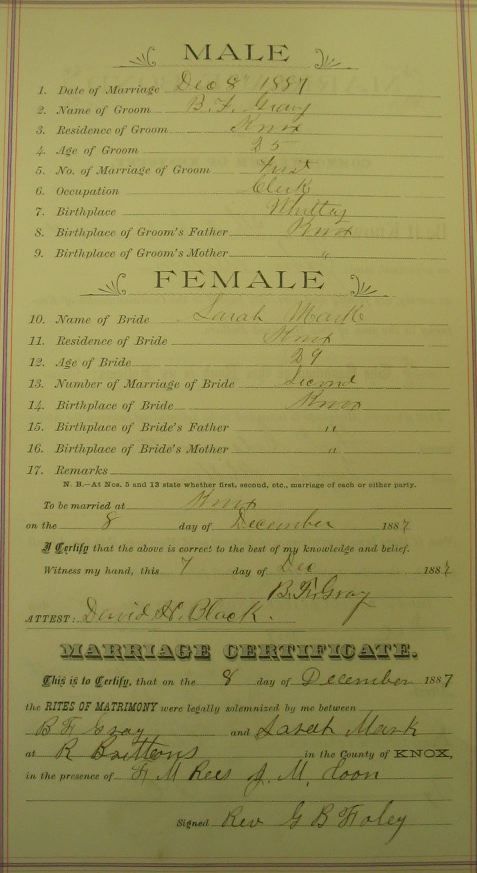 MALE
1. Date of Marriage Dec 8" 1887
2. Name of Groom B. F. Gray
3. Residence of Groom Knox
4. Age of Groom 25
5. No. of Marriage of Groom First
6. Occupation Clerk
7. Birthplace Whitley
8. Birthplace of Groom's Father Knox
9. Birthplace of Groom's Mother "
FEMALE
10. Name of Bride Sarah Mark
11. Residence of Bride Knox
12. Age of Bride 29
13. Number of Marriage of Bride Second
14. Birthplace of Bride Knox
15. Birthplace of Bride's Father "
16. Birthplace of Bride's Mother "
17. Remarks
N. B.—At Nos. 5 and 13 state whether first, second, etc., marriage of each or either party.
To be married at Knox
on the 8 day of December 1887
I Certify that the above is correct to the best of my knowledge and belief.
Witness my hand, this 7 day of Dec 1887
B. F. Gray
ATTEST: David H. Black.
MARRIAGE CERTIFICATE.
This is to Certify, that on the 8 day of December 1887
the RITES OF MATRIMONY were legally solemnized by me between
B F Gray and Sarah Mark
at R Brittons in the County of KNOX,
in the presence of F M Rees J. M.
Signed Rev G B Foley